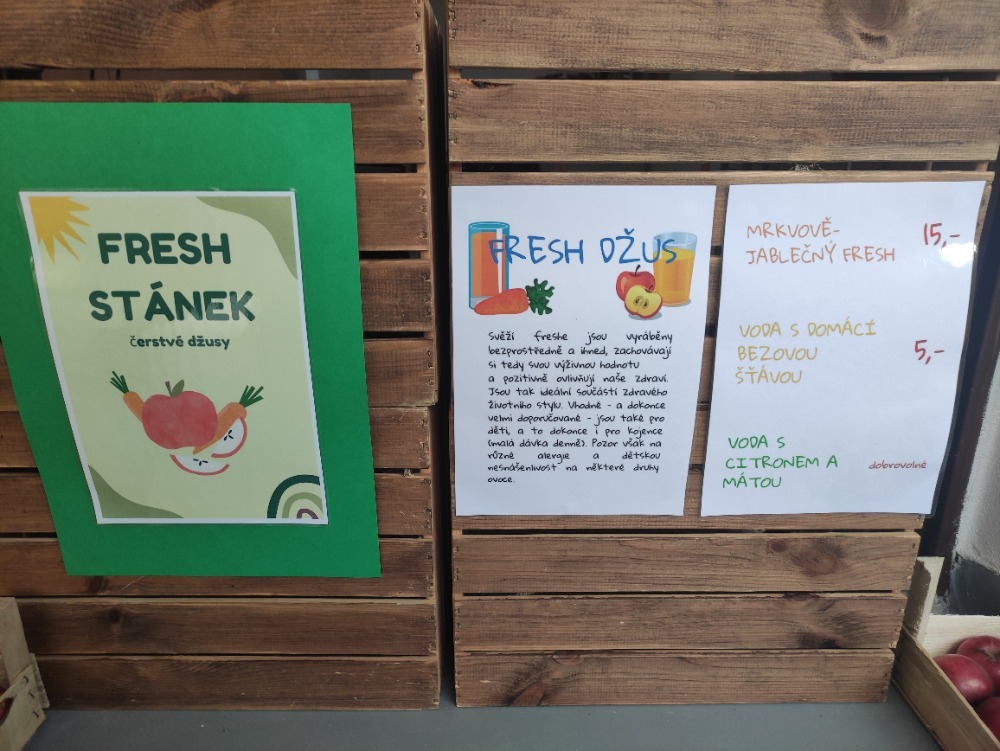 FRESH
STÁNEK
čerstvé džusy
FRESH DŽUS
Svěží freshe jsou vyráběny
bezprostředně a ihned, zachovávají
si tedy svou výživnou hodnotu
a pozitivně ovlivňují naše zdraví.
Jsou tak ideální součástí zdravého
životního stylu. Vhodné - a dokonce
velmi doporučované - jsou také pro
děti, a to dokonce i pro kojence
(malá dávka denně). Pozor však na
různé alergie a dětskou
nesnášenlivost na některé druhy
ovoce.
MRKVOVĚ-
JABLEČNÝ FRESH 15,-
VODA S DOMÁCÍ
BEZOVOU 5,-
ŠŤÁVOU
VODA S
CITRONEM A dobrovolné
MÁTOU